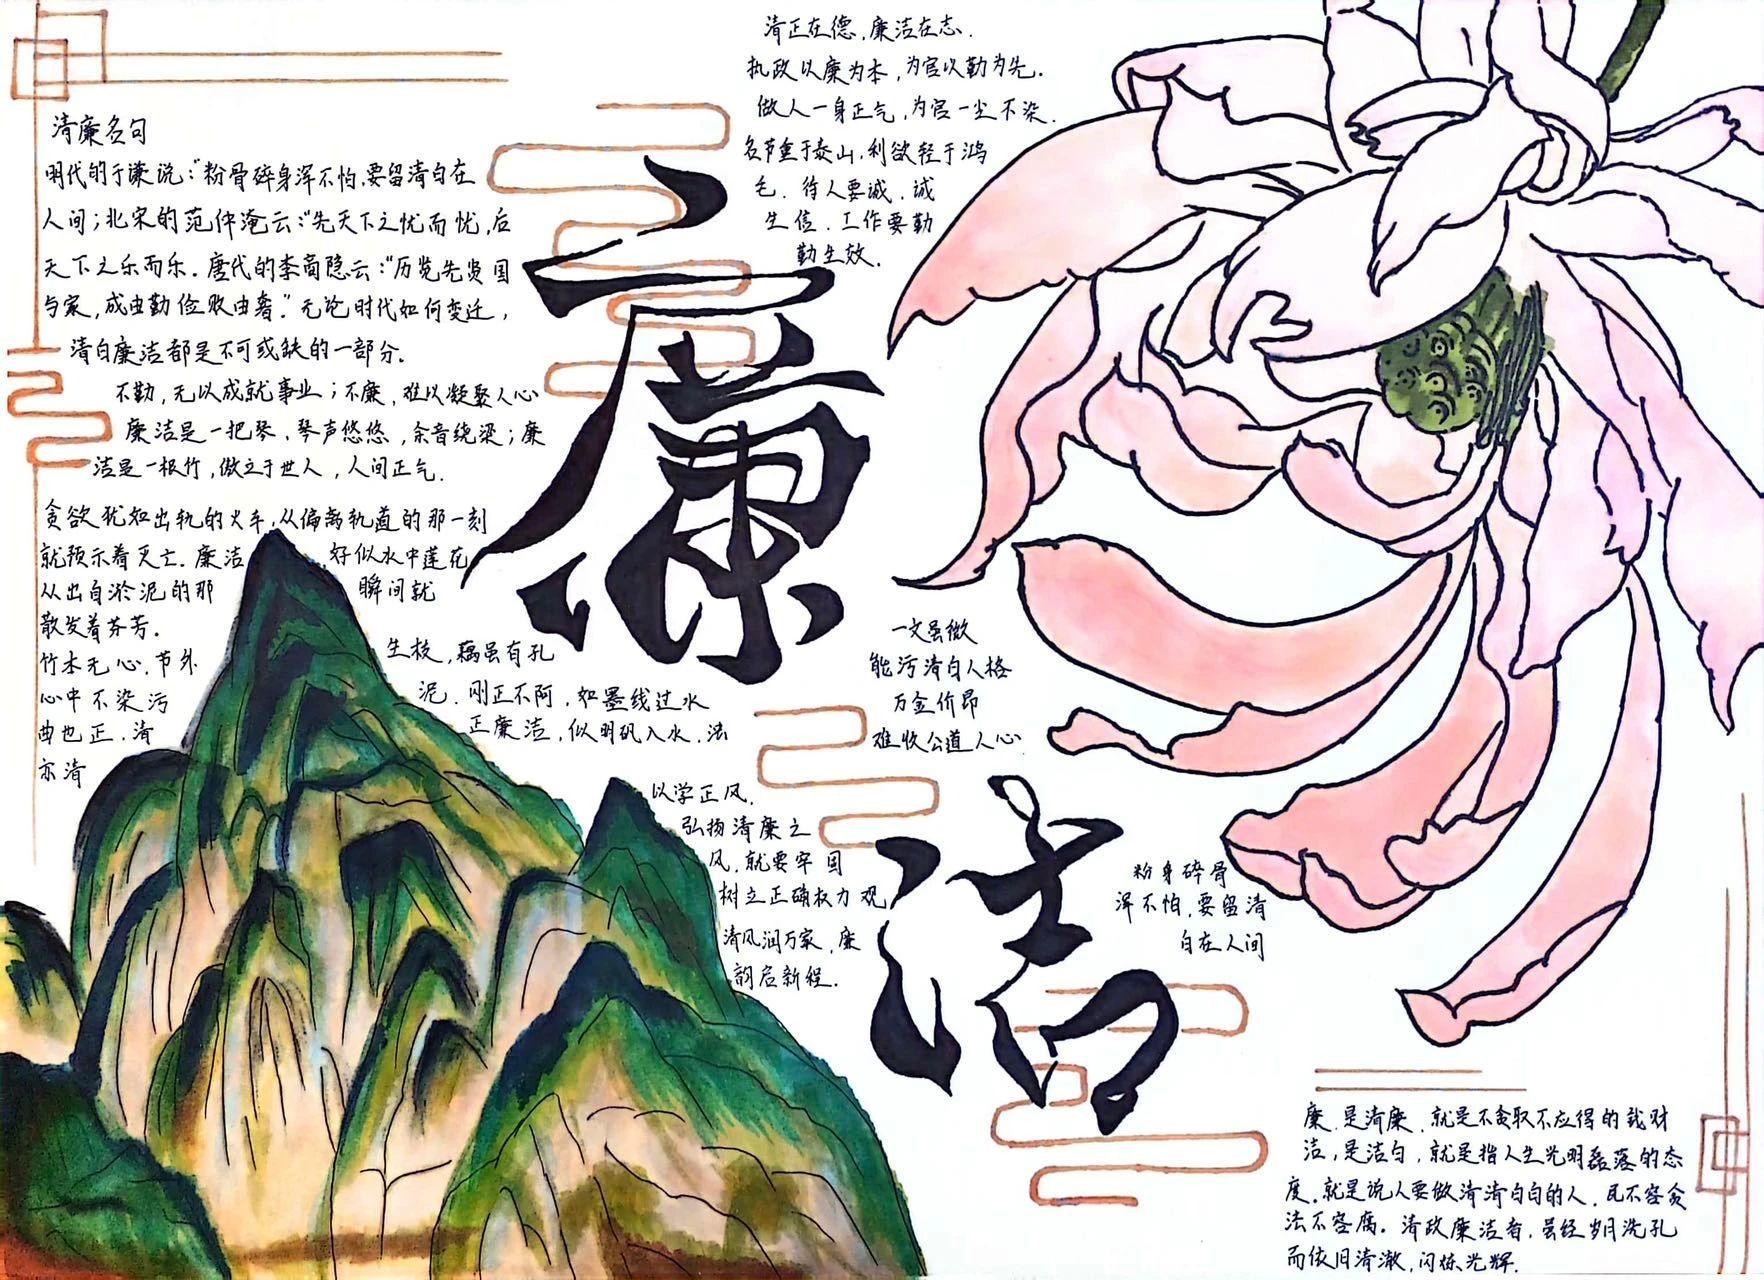 清廉名句
明代的于谦说:"粉骨碎身浑不怕,要留清白在
人间;北宋的范仲淹云:"先天下之忧而忧,后
天下之乐而乐.唐代的李商隐云:"历览先贤国
与家,成由勤俭败由奢."无论时代如何变迁,
清白廉洁都是不可或缺的一部分.
不勤,无以成就事业;不廉,难以凝聚人心
廉洁是一把琴,琴声悠悠,余音绕梁;廉
洁是一根竹,傲立于世人,人间正气.
贪欲犹如出轨的火车,从偏离轨道的那一刻
就预示着灭亡.廉洁 好似水中莲花
从出自淤泥的那 瞬间就
散发着芬芳.
竹本无心,节外 生枝,藕虽有孔
心中不染污 泥.刚正不阿,如墨线过水
曲也正.清 正廉洁,似明矾入水,浊
亦清
清正在德,廉洁在志.
执政以廉为本,为官以勤为先.
做人一身正气,为官一尘不染.
名节重于泰山,利欲轻于鸿
毛.待人要诚,诚
生信.工作要勤
勤生效.
廉
一文虽微
能污清白人格
万金价昂
难收公道人心
以学正风,
弘扬清廉之
风,就要牢固
树立正确权力观
清风润万家,廉
韵启新程.
洁
粉身碎骨
浑不怕,要留清
白在人间
廉,是清廉,就是不贪取不应得的钱财
洁,是洁白,就是指人生光明磊落的态
度.就是说人要做清清白白的人.民不容贪
法不容腐.清政廉洁者,虽经岁月洗孔
而依旧清澈,闪烁光辉.